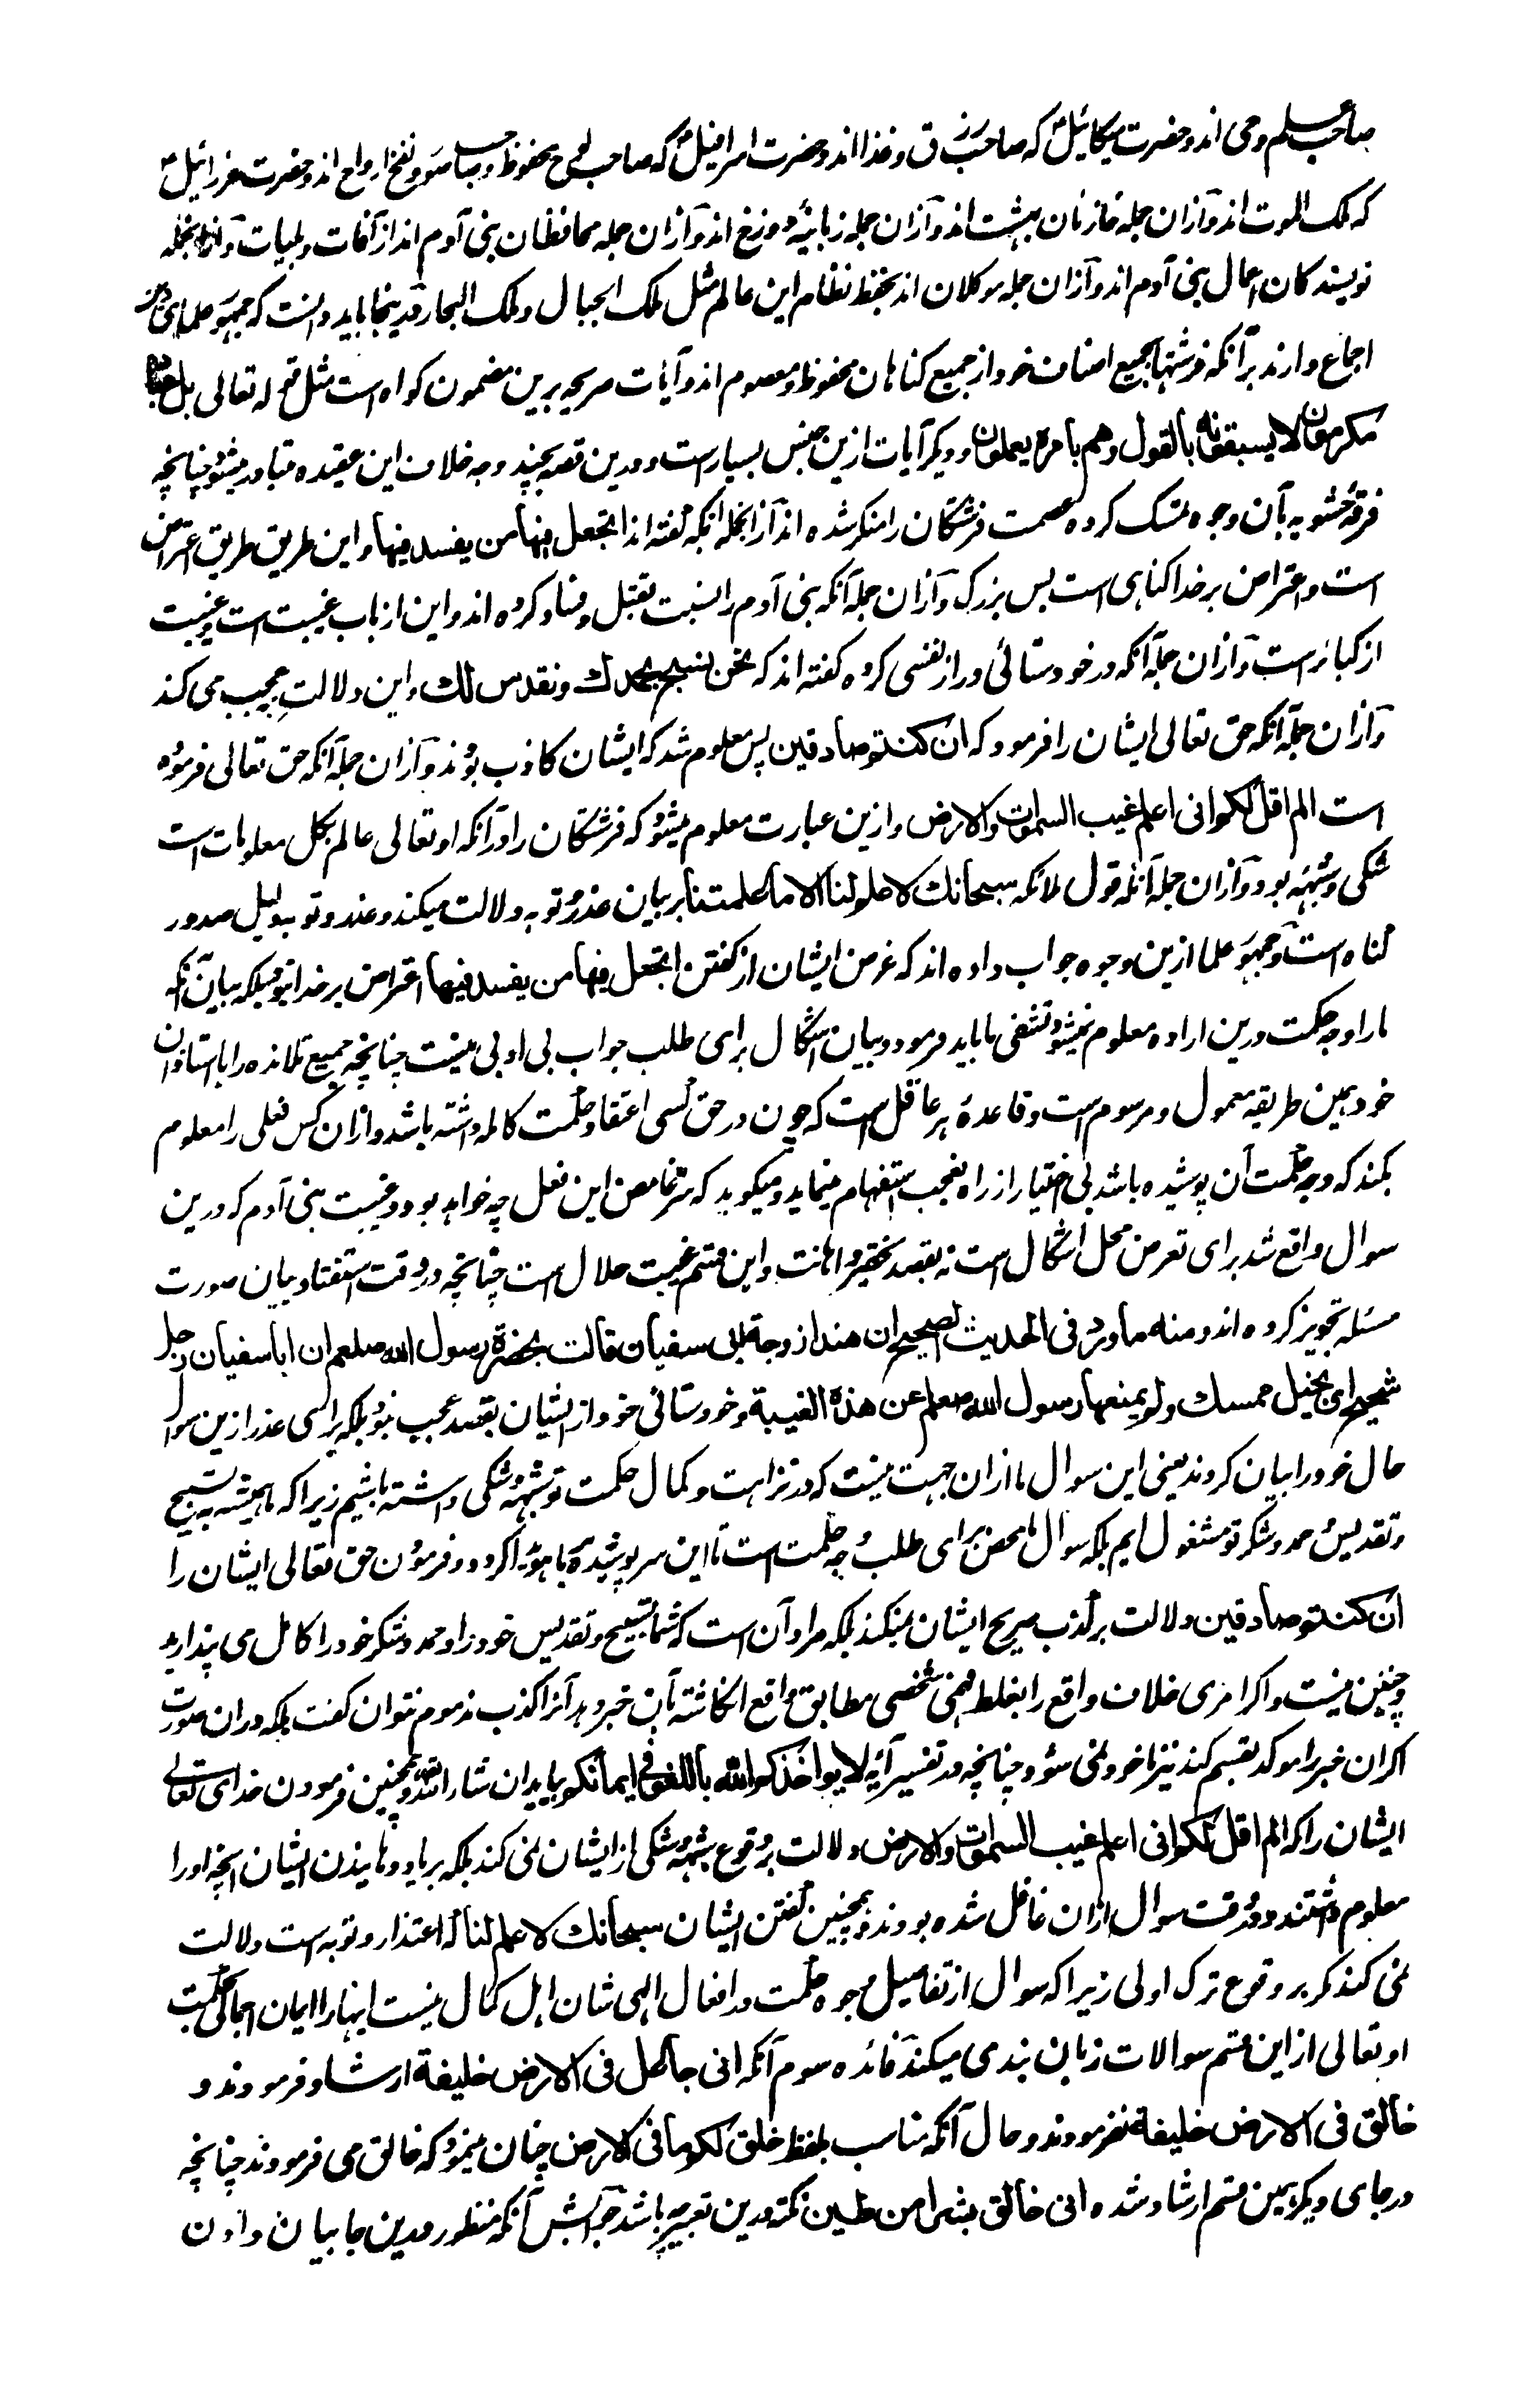 صاحب علم و وحی اند و حضرت میکائیل ع که صاحب رزق و غذا اند و حضرت اسرافیل ع که صاحب لوح محفوظ و صاحب صور و نفخ ارواح اند و حضرت عزرائیل ع
که ملک الموت اند و از ان جمله خازنان بهشت اند و از ان جمله زبانیهٔ دوزخ اند و از ان جمله محافظان بنی آدم اند از آفات و بلیات و از انجمله
نویسندکان اعمال بنی آدم اند و از ان جمله موکلان اند بحفظ نظام این عالم مثل ملک الجبال و ملک البحار و در ینجا باید دانست که جمهور علمای دین
اجماع دارند بر آنکه فرشتها بجمیع اصناف خود از جمیع کناهان محفوظ و معصوم اند و آیات صریحه برین مضمون کواه است مثل قوله تعالی بل عباد
مکرمون لا یسبقونه بالقول وهم بامره یعملون و دیکر آیات ازین جنس بسیار است و درین قصه بچند وجه خلاف این عقیده متبادر میشود چنانچه
فرقهٔ حشویه بآن وجوه تمسک کرده عصمت فرشتکان را منکر شده اند از انجمله آنکه گفته اند اتجعل فیها من یفسد فیها و این طریق طریق اعتراض
است و اعتراض بر خدا کناهی است بس بزرک و از ان جمله آنکه بنی آدم را نسبت بقتل و فساد کرده اند و این از باب غیبت است و غیبت
از کبائر است و از ان جمله آنکه در خود ستائی دراز نفسی کرده کفته اند که نحن نسبح بحمدك ونقدس لك و این دلالت بر عجب می کند
و از ان جمله آنکه حق تعالی ایشان را فرمود که ان کنتم صادقین پس معلوم شد که ایشان کاذب بودند و از ان جمله آنکه حق تعالی فرموده
است الم اقل لکم انی اعلم غیب السموات والارض و ازین عبارت معلوم میشود که فرشتکان را در آنکه او تعالی عالم بکل معلومات است
شکی و شبهه بود و از ان جمله آنکه قول ملائکه سبحانك لا علم لنا الا ما علمتنا بر بیان عذر و توبه دلالت میکند و عذر و توبه دلیل صدور
گناه است و جمهور علما ازین وجوه جواب داده اند که غرض ایشان از کفتن اتجعل فیها من یفسد فیها اعتراض بر خدا نبود بلکه بیان آنکه
ما را وجه حکمت درین اراده معلوم نمیشود تشفی ما باید فرمود و بیان اشکال برای طلب جواب بی ادبی نیست چنانچه جمیع تلامذه را با استادان
خود همین طریقه معمول و مرسوم است و قاعدهٔ هر عاقل است که چون در حق کسی اعتقاد حکمت کامله داشته باشد و از ان کس فعلی را معلوم
بکند که وجه حکمت آن پوشیده باشد بی اختیار از راه تعجب استفهام مینماید و میکوید که سر غامض این فعل چه خواهد بود و غیبت بنی آدم که درین
سوال واقع شد برای تعرض محل اشکال است نه بقصد تحقیر و اهانت و این قسم غیبت حلال است چنانچه در وقت استفتا و بیان صورت
مسئله تجویز کرده اند و منه ما ورد فی الحدیث الصحیح ان هندا زوجة ابی سفیان قالت بحضرة رسول الله صلعم ان ابا سفیان رجل
شحیح ای بخیل ممسك ولم یمنعها رسول الله صلعم عن هذه الغیبة و خود ستائی خود از ایشان بقصد عجب نبود بلکه برای عذر ازین سوال
حال خود را بیان کردند یعنی این سوال ما از ان جهت نیست که در تنزاهت و کمال حکمت تو شبهه و شکی داشته باشیم زیرا که ما همیشه به تسبیح
و تقدیس و حمد و شکر تو مشغول ایم بلکه سوال ما محض برای طلب وجه حکمت است تا این سر پوشیده بما هویدا کردد و فرمودن حق تعالی ایشان را
ان کنتم صادقین دلالت بر کذب صریح ایشان نمیکند بلکه مراد آن است که شما تسبیح و تقدیس خود را و حمد و شکر خود را کامل می پندارید
و چنین نیست و اکر امری خلاف واقع را بغلط فهمی شخصی مطابق واقع انکاشته بآن خبر دهد آنرا کذب مذموم نتوان کفت بلکه در ان صورت
اکر ان خبر را موکد بقسم کند نیز ماخوذ نمی شود چنانچه در تفسیر آیهٔ لا یواخذکم الله باللغو فی ایمانکم بیاید ان شاء الله و همچنین فرمودن خدای تعالی
ایشان را که الم اقل لکم انی اعلم غیب السموات والارض دلالت بر وقوع شبهه و شکی از ایشان نمی کند بلکه بر یاد دهانیدن ایشان آنچه او را
معلوم داشتند و در وقت سوال از ان غافل شده بودند و همچنین گفتن ایشان سبحانك لا علم لنا که اعتذار و توبه است دلالت
نمی کند مکر بر وقوع ترک اولی زیرا که سوال از تفاصیل وجوه حکمت در افعال الهی شان اهل کمال نیست اینها را ایمان اجمالی بحکمت
او تعالی از این قسم سوالات زبان بندی میکند فائده سوم آنکه انی جاعل فی الارض خلیفة ارشاد فرمودند و
خالق فی الارض خلیفة نفرمودند و حال آنکه مناسب بلفظ خلق لکم ما فی الارض چنان مینمود که خالق می فرمودند چنانچه
در جای دیکر همین قسم ارشاد شده انی خالق بشرا من طین نکته درین تعبیر چه باشد جوابش آنکه منظور درین جا بیان دادن